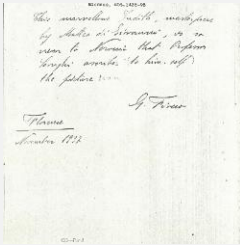 This marvellous Judith, masterpiece
by Matteo di Giovanni, is so
near to Neroccio that Professor
Longhi ascribes to him-self
the picture
G. Fiocco
Florence
November 1937